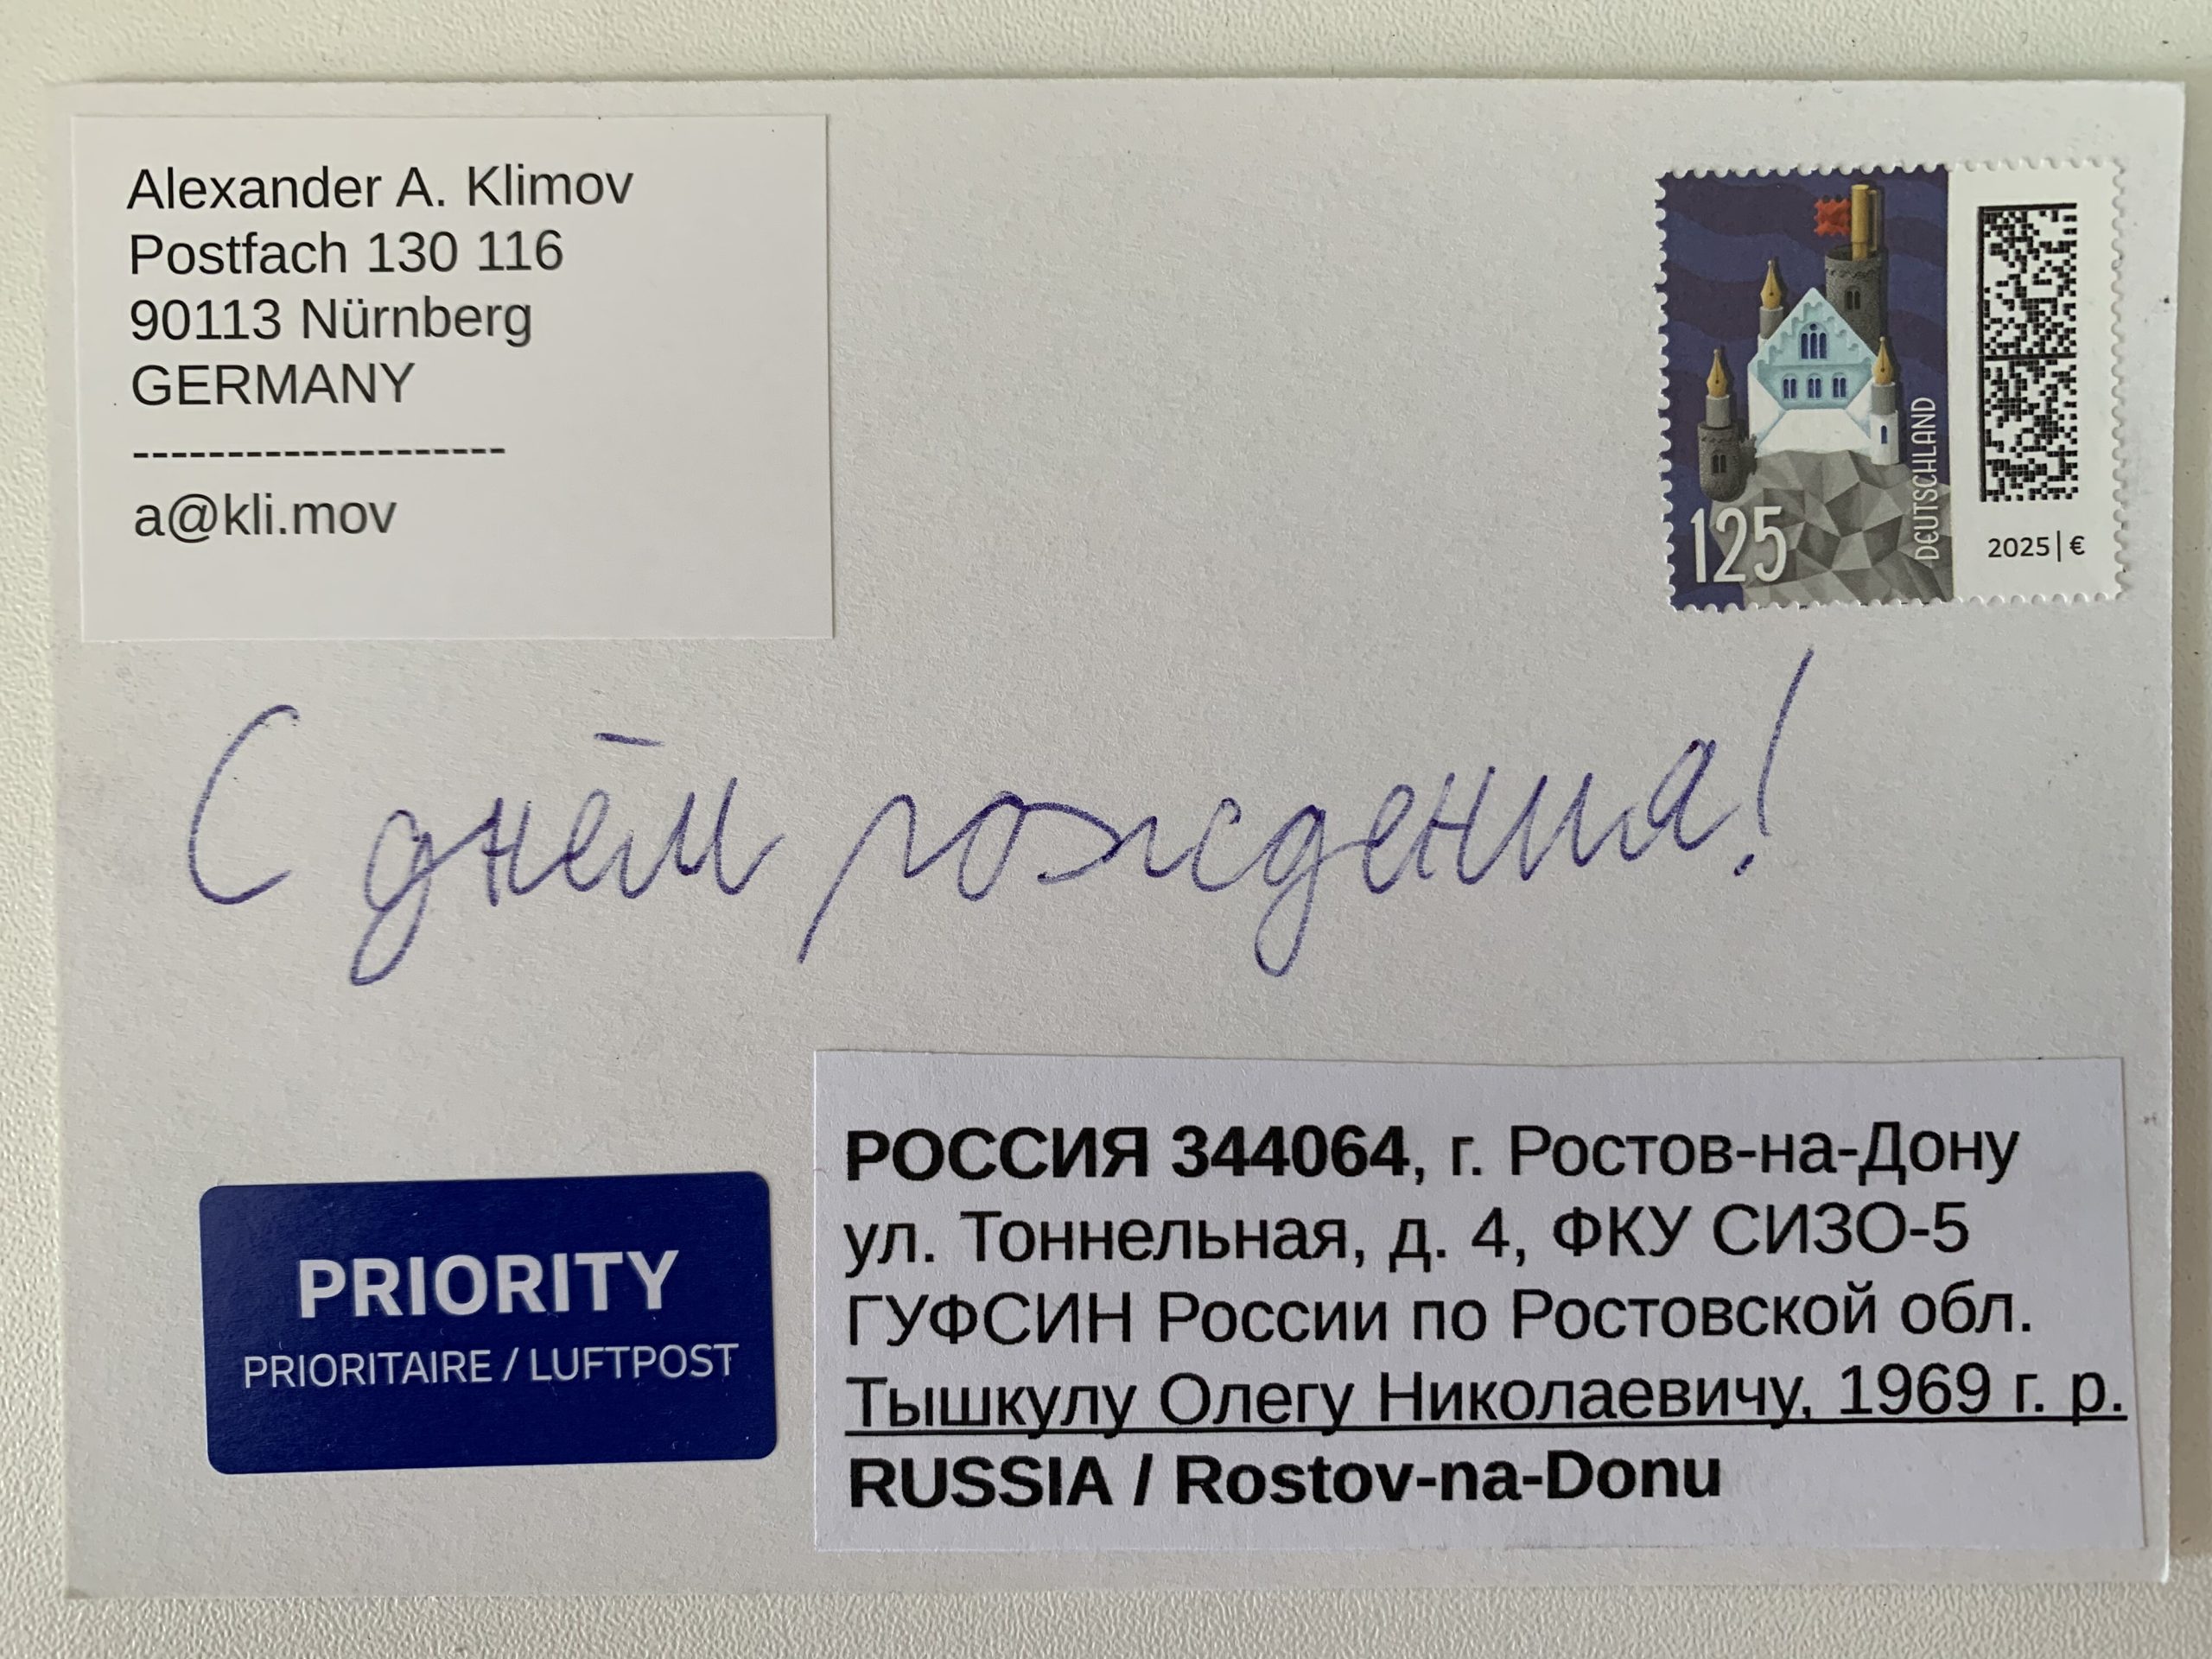 Alexander A. Klimov
Postfach 130 116
90113 Nürnberg
GERMANY
--------------------
a@kli.mov
125
DEUTSCHLAND
2025|€
С днём рождения!
PRIORITY
PRIORITAIRE / LUFTPOST
РОССИЯ 344064, г. Ростов-на-Дону
ул. Тоннельная, д. 4, ФКУ СИЗО-5
ГУФСИН России по Ростовской обл.
Тышкулу Олегу Николаевичу, 1969 г. р.
RUSSIA / Rostov-na-Donu